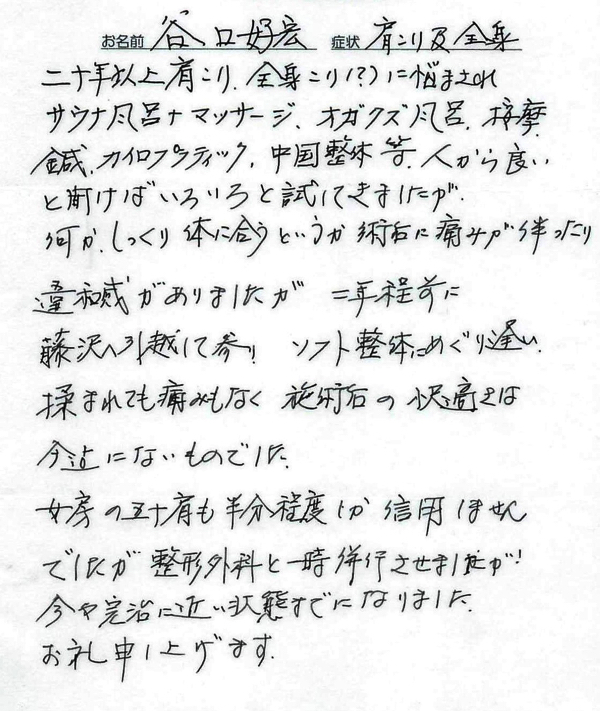 お名前 谷口好宏 症状 肩こり及全身
二十年以上肩こり、全身こり(?)に悩まされ
サウナ風呂+マッサージ、オガクズ風呂、按摩、
鍼、カイロプラティック、中国整体等、人から良い
と聞けばいろいろと試してきましたが、
何か、しっくり体に合うというか術后に痛みが伴ったり
違和感がありましたが 二年程前に
藤沢へ引越して参り ソフト整体にめぐり逢い、
揉まれても痛みもなく 施術后の快適さは
今迄にないものでした。
女房の五十肩も半分程度しか信用しません
でしたが整形外科と一時併行させましたが!
今や完治に近い状態までになりました。
お礼申し上げます。